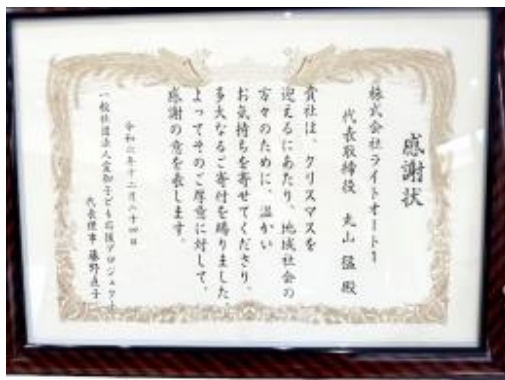 感謝状
株式会社ライトオート
代表取締役 丸山 猛 殿
貴社は、クリスマスを
迎えるにあたり、地域社会の
方々のために、温かい
お気持ちを寄せてくださり、
多大なるご寄付を賜りました。
よってそのご厚意に対して、
感謝の意を表します。
令和六年十二月二十四日
一般社団法人愛知子ども応援プロジェクト
代表理事 藤野直子